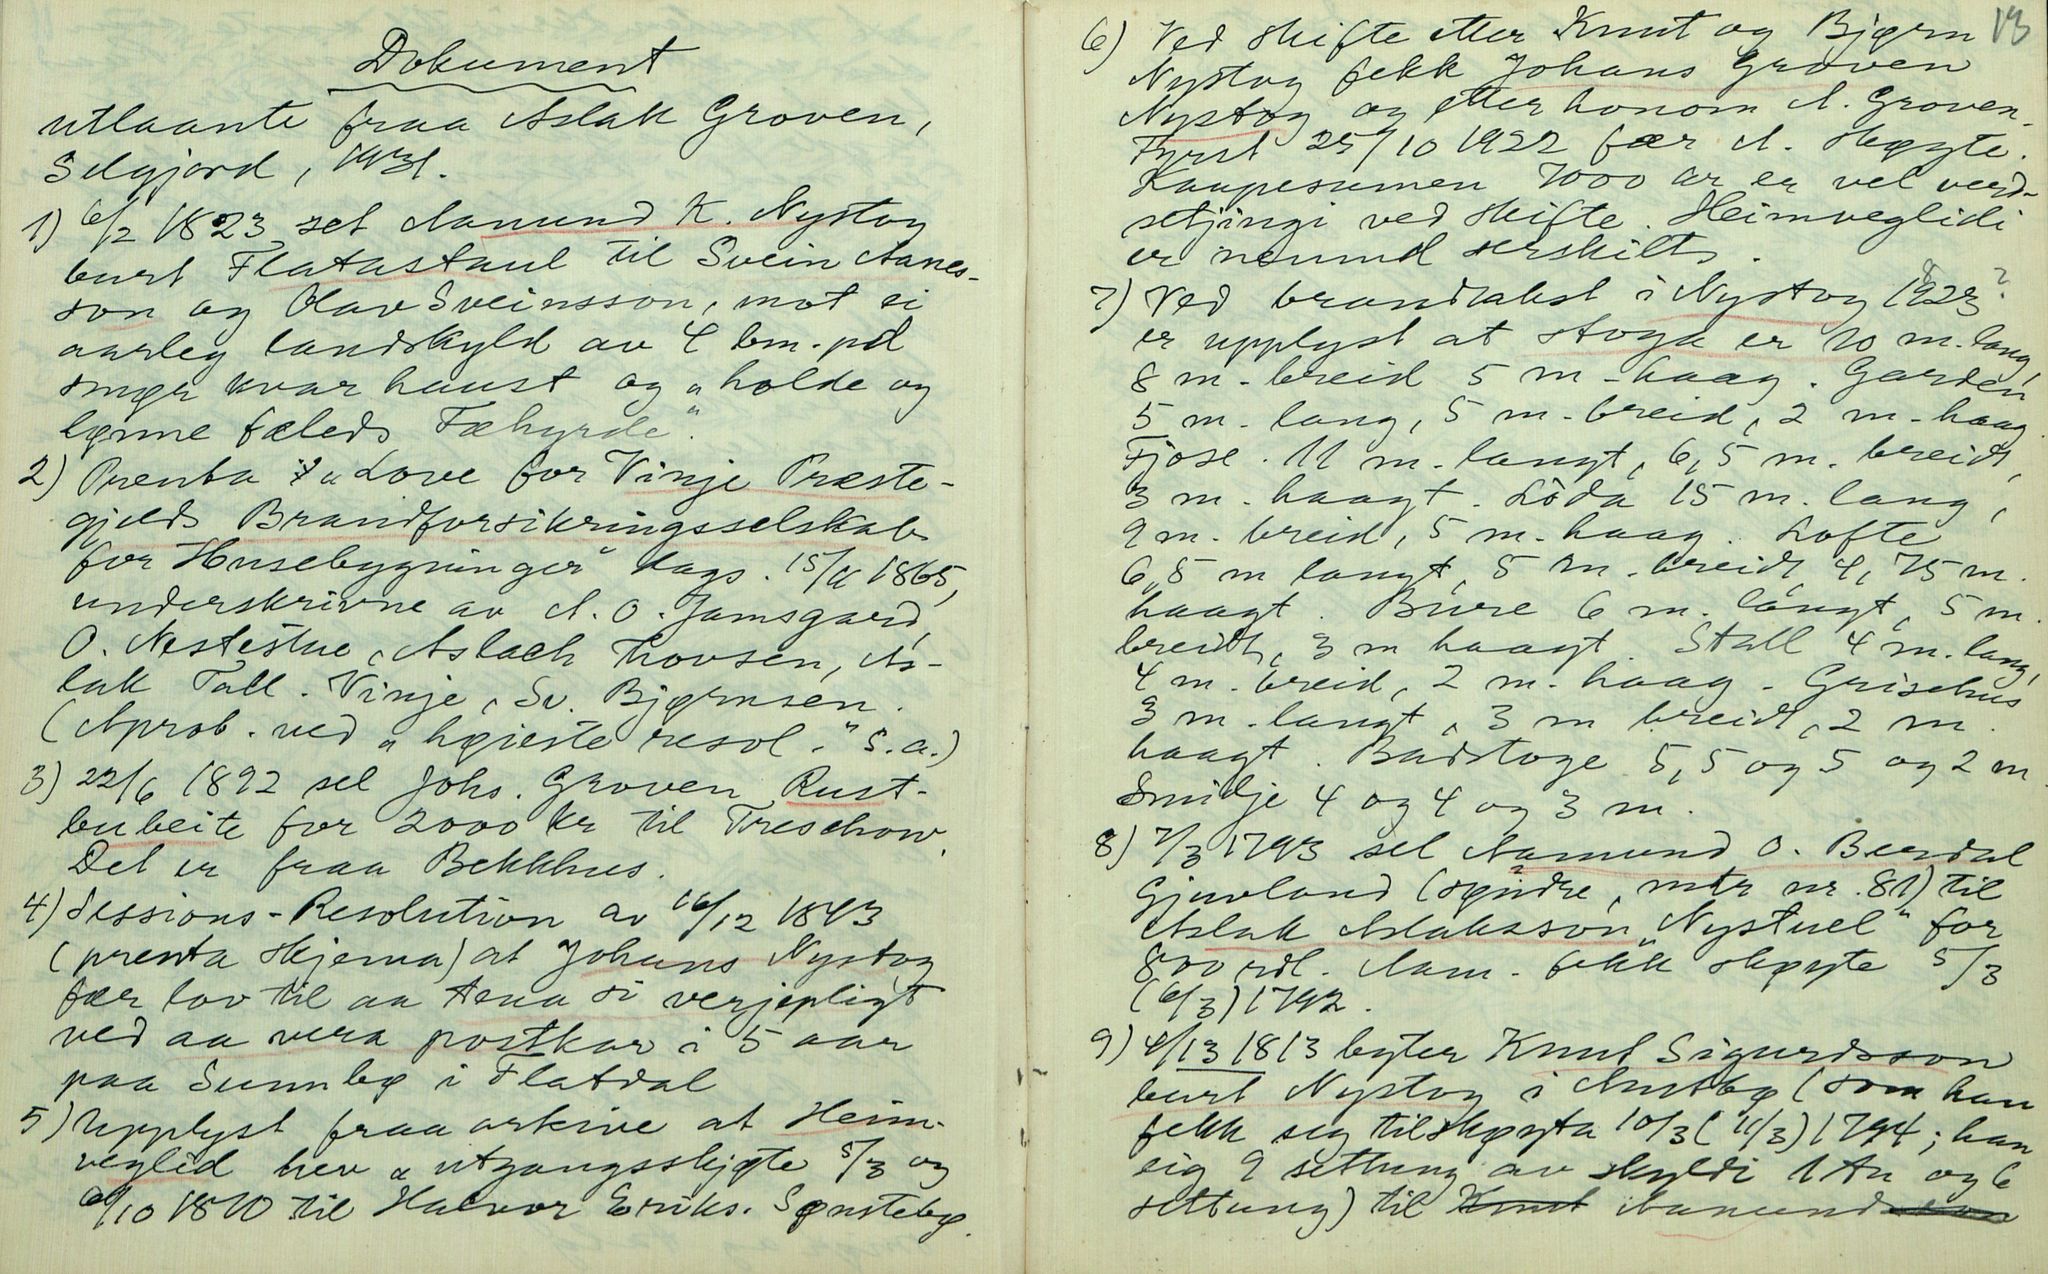 Dokument
utlaante fraa Aslak Groven,
Selgjord, 1931.
1) 6/2 1823 sel Aamund K. Nystog
burt Flatastaul til Svein Aanes-
son og Olav Sveinsson, mot ei
aarleg landskyld av 4 bm. pd
smør kvar haust og "holde og
lønne fæleds Fæhyrde".
2) Prenta "Love for Vinje Præste-
gjelds Brandforsikringsselskab
for Husebygninger" dags. 15/11 1865,
underskrivne av A. O. Jamsgard,
O. Nestestue, Aslach Thovsen, As-
lak Tall. Vinje, Sv. Bjørnsen.
(Aprob. ved "høieste resol." s.a.)
3) 22/6 1892 sel Johs. Groven Rust-
bubeite for 2000 kr til Treschow.
Det er fraa Bekkhus.
4) Sessions-Resolution av 16/12 1843
(prenta skjema) at Johans Nystog
fær lov til aa tena si verjepligt
ved aa vera postkar i 5 aar
paa Sunnbø i Flatdal
5) Upplyst fraa arkive at Heim-
veglid hev "utgangsskjøte 5/3 og
/10 1870 til Halvor Eriks. Sønstebø.
13
6) Ved skifte etter Knut og Bjørn
Nystog fekk Johans Groven
Nystog og etter honom A. Groven.
Fyrst 25/10 1922 fær A. skøyte.
Kaupesumen 7000 kr er vel verd-
setjingi ved skifte. Heimveglidi
er nemnd serskilt.
7) Ved brandtakst i Nystog 1923?
8
er upplyst at stoga er 10 m. lang,
8 m. breid 5 m. haag. Garden
5 m. lang, 5 m. breid, 2 m. haag.
Fjose. 11 m. langt, 6,5 m. breidt,
3 m. haagt. Löda 15 m. lang,
9 m. breid, 5 m. haag. Lofte
6,5 m langt, 5 m. breidt, 4,75 m.
haagt. Bure 6 m. langt, 5 m.
breidt, 3 m haagt. Stall 4 m. lang,
4 m. breid, 2 m. haag. Grisehus
3 m. langt, 3 m breidt, 2 m.
haagt. Badstoge 5,5 og 5 og 2 m.
Smidje 4 og 4 og 3 m.
8) 7/3 1793 sel Aamund O. Berdal
Gjuvland (søndre, mtr nr. 81) til
Aslak Aslaksson "Nystuel" for
800 rdl. Aam. fekk skøyte 5/3
(6/3) 1792.
9) 4/13 1813 byter Knut Sigurdsson
burt Nystog i Austbø (som han
fekk seg tilskøyta 10/3 (11/3) 1794; han
eig 9 settung av skyldi 1 tn og 6
settung) til Knut Aamund